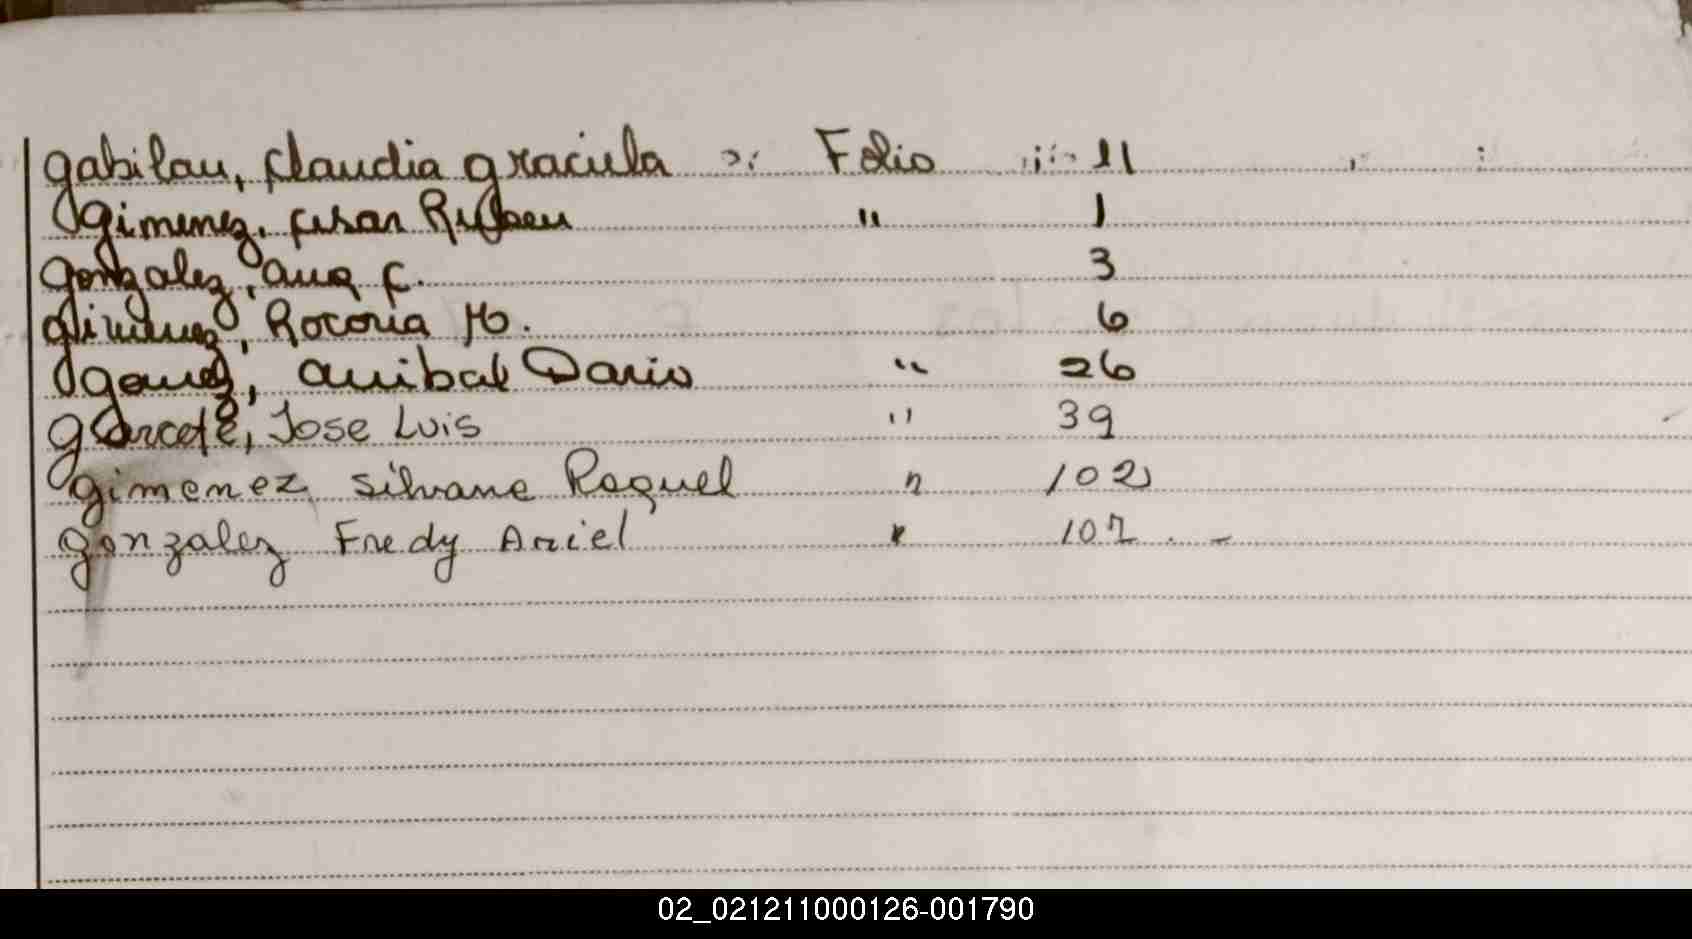 Gabilan, Claudia Graciela Folio 11
Gimenez, Cesar Ruben " 1
Gonzalez, Ana C. 3
Gimenez, M. 6
Gomez, Anibal Dario " 26
Garcete, Jose Luis " 39
Gimenez Silvana Raquel " 102
Gonzalez Fredy Ariel " 107 . -
02_021211000126-001790